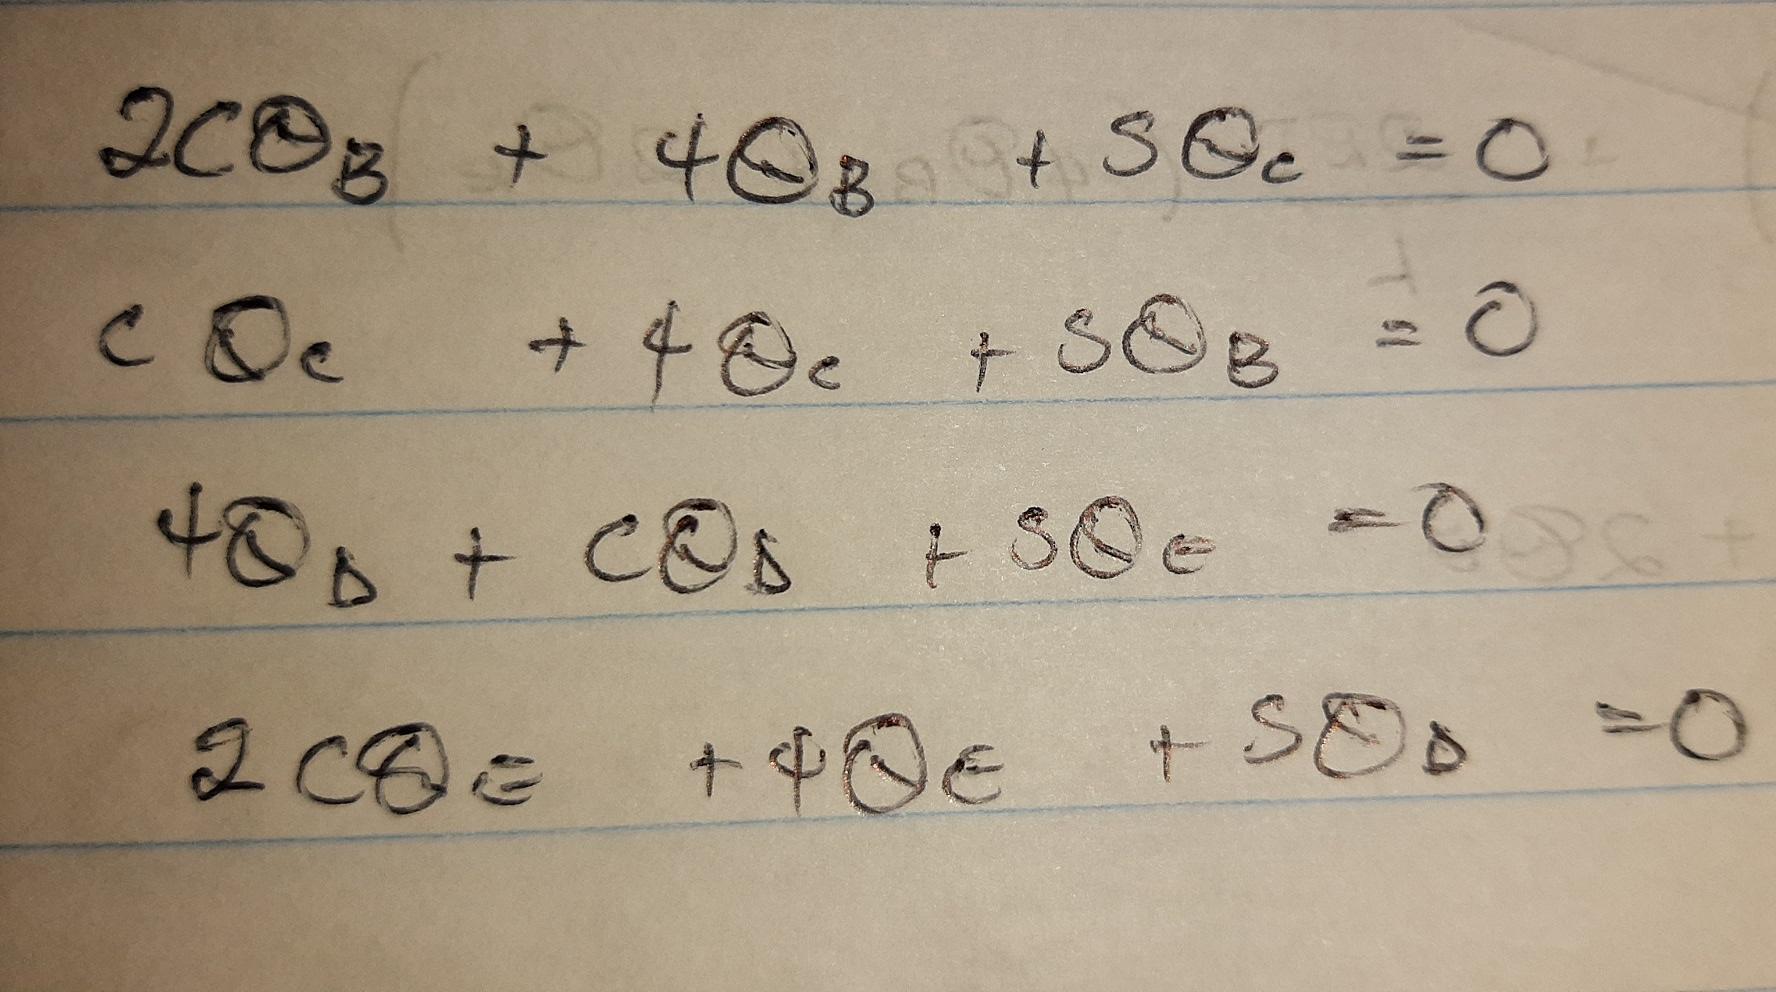 2cθ_B + 4θ_B + sθ_c = 0
cθ_c + 4θ_c + sθ_B = 0
4θ_D + cθ_D + sθ_E = 0
2cθ_E + 4θ_E + sθ_D = 0